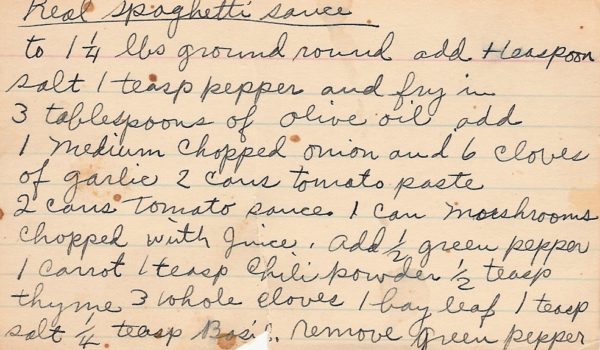 Real Spaghetti sauce
to 1 1/4 lbs ground round add 1 teaspoon
salt 1 teasp pepper and fry in
3 tablespoons of olive oil add
1 Medium Chopped onion and 6 cloves
of garlic 2 cans tomato paste
2 cans Tomato sauce. 1 can Morshrooms
chopped with Juice. Add 1/2 green pepper
1 carrot 1 teasp chili powder 1/2 teasp
thyme 3 whole cloves 1 bay leaf 1 teasp
salt 1/4 teasp Basil. remove green pepper